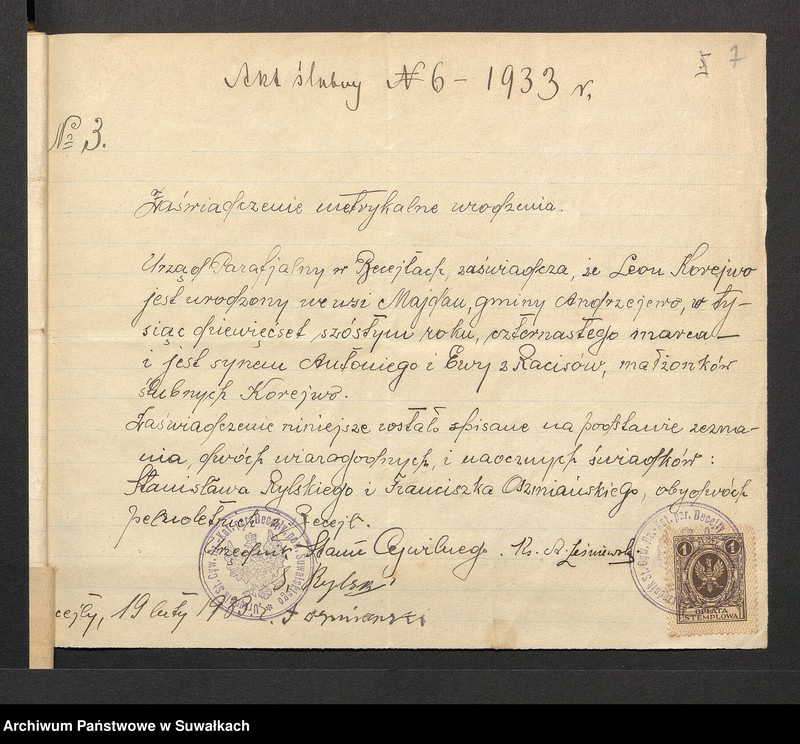 Akt ślubny N 6 - 1933 r.
5 7
№ 3.
Zaświadczenie metrykalne urodzenia.
Urząd Parafjalny w Becejłach, zaświadcza, że Leon Korejwo
jest urodzony we wsi Majdan, gminy Andrzejewo, w ty-
siąc dziewięćset szóstym roku, czternastego marca
i jest synem Antoniego i Ewy z Racisów, małżonków
ślubnych Korejwo.
Zaświadczenie niniejsze zostało spisane na podstawie zezna-
nia, dwóch wiarogodnych, i naocznych świadków:
Stanisława Rylskiego i Franciszka Oszmiańskiego, obydwóch
pełnoletnich z Becejł.
Urzędnik Stanu Cywilnego. Ks. A. Leśniewski
S. Rylski
cejły, 19 luty 19
1 1
OPŁATA
STEMPLOWA
Archiwum Państwowe w Suwałkach